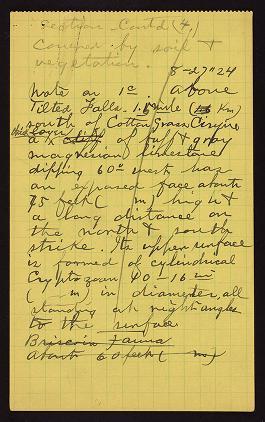 Section Contd (4.)
Covered by soil &
vegetation.
8-27"24
Note on 1ᵃ. Above
Tilted Falls. 1. mile ( Km)
south of Cotton Grass Cirque
a x cliff of buff & gray
thick layer
magnesian limestone
dipping 60° west has
an exposed face about
75 feet ( m) high &
a long distance on
the north & south
strike. Its upper surface
is formed of cylindrical
Cryptozoan 40-16 in
( m) in diameter, all
standing at right angles
to the surface.
Briscoia fauna
About 60 feet ( m)